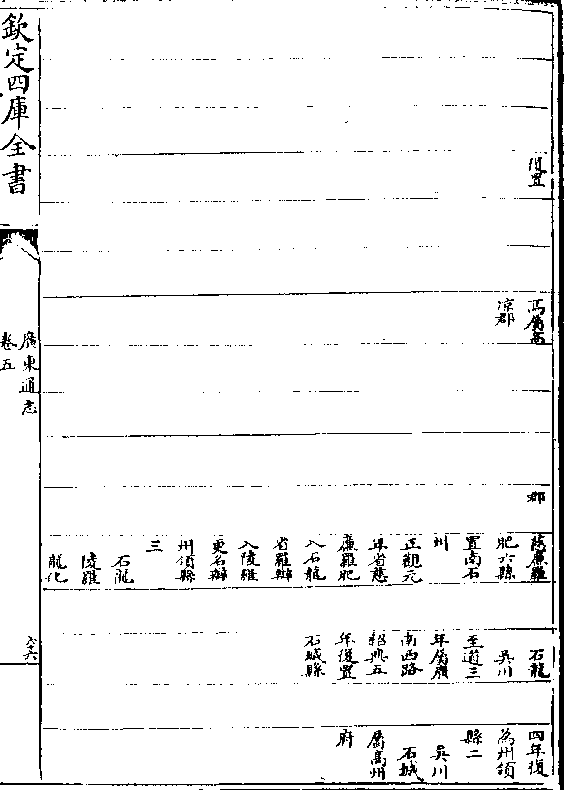 復置
高屬高
凉郡
郡
慈廉羅
肥六縣
置南石
州
正觀元
年省慈
廉羅肥
入石龍
省羅辯
入陵羅
更名辯
州領縣
三
石龍
陵羅
龍化
石龍
吳川
至道三
年屬廣
南西路
紹興五
年復置
石城縣
四年復
為州領
縣二
吳川
石城
屬高州
府
欽定四庫全書
廣東通志
卷五